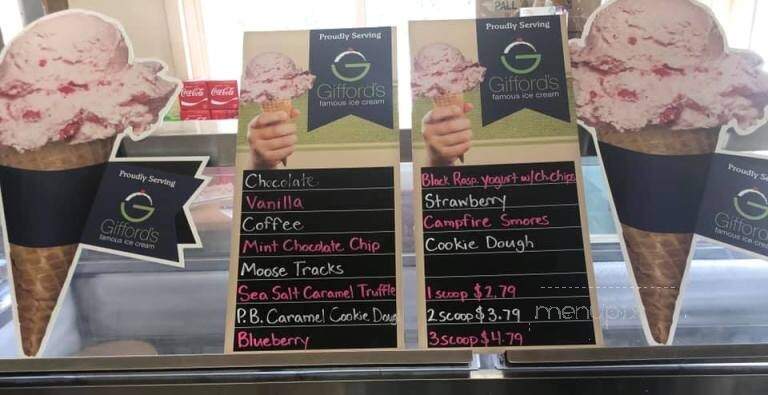 PALL
Proudly Serving
Gifford's
famous ice cream
Chocolate
Vanilla
Coffee
Mint Chocolate Chip
Moose Tracks
Sea Salt Caramel Truffle
P.B. Caramel Cookie Doug
Blueberry
Proudly Serving
Gifford's
famous ice cream
Black Rasp. yogurt w/ch.chips
Strawberry
Campfire Smores
Cookie Dough
1 scoop $2.79
2 scoop $3.79
3 scoop $4.79
Coca-Cola
Coca-Cola
Proudly Serving
Gifford's
famous ice cream
Proudly Serving
Gifford's
famous ice cream
menupix